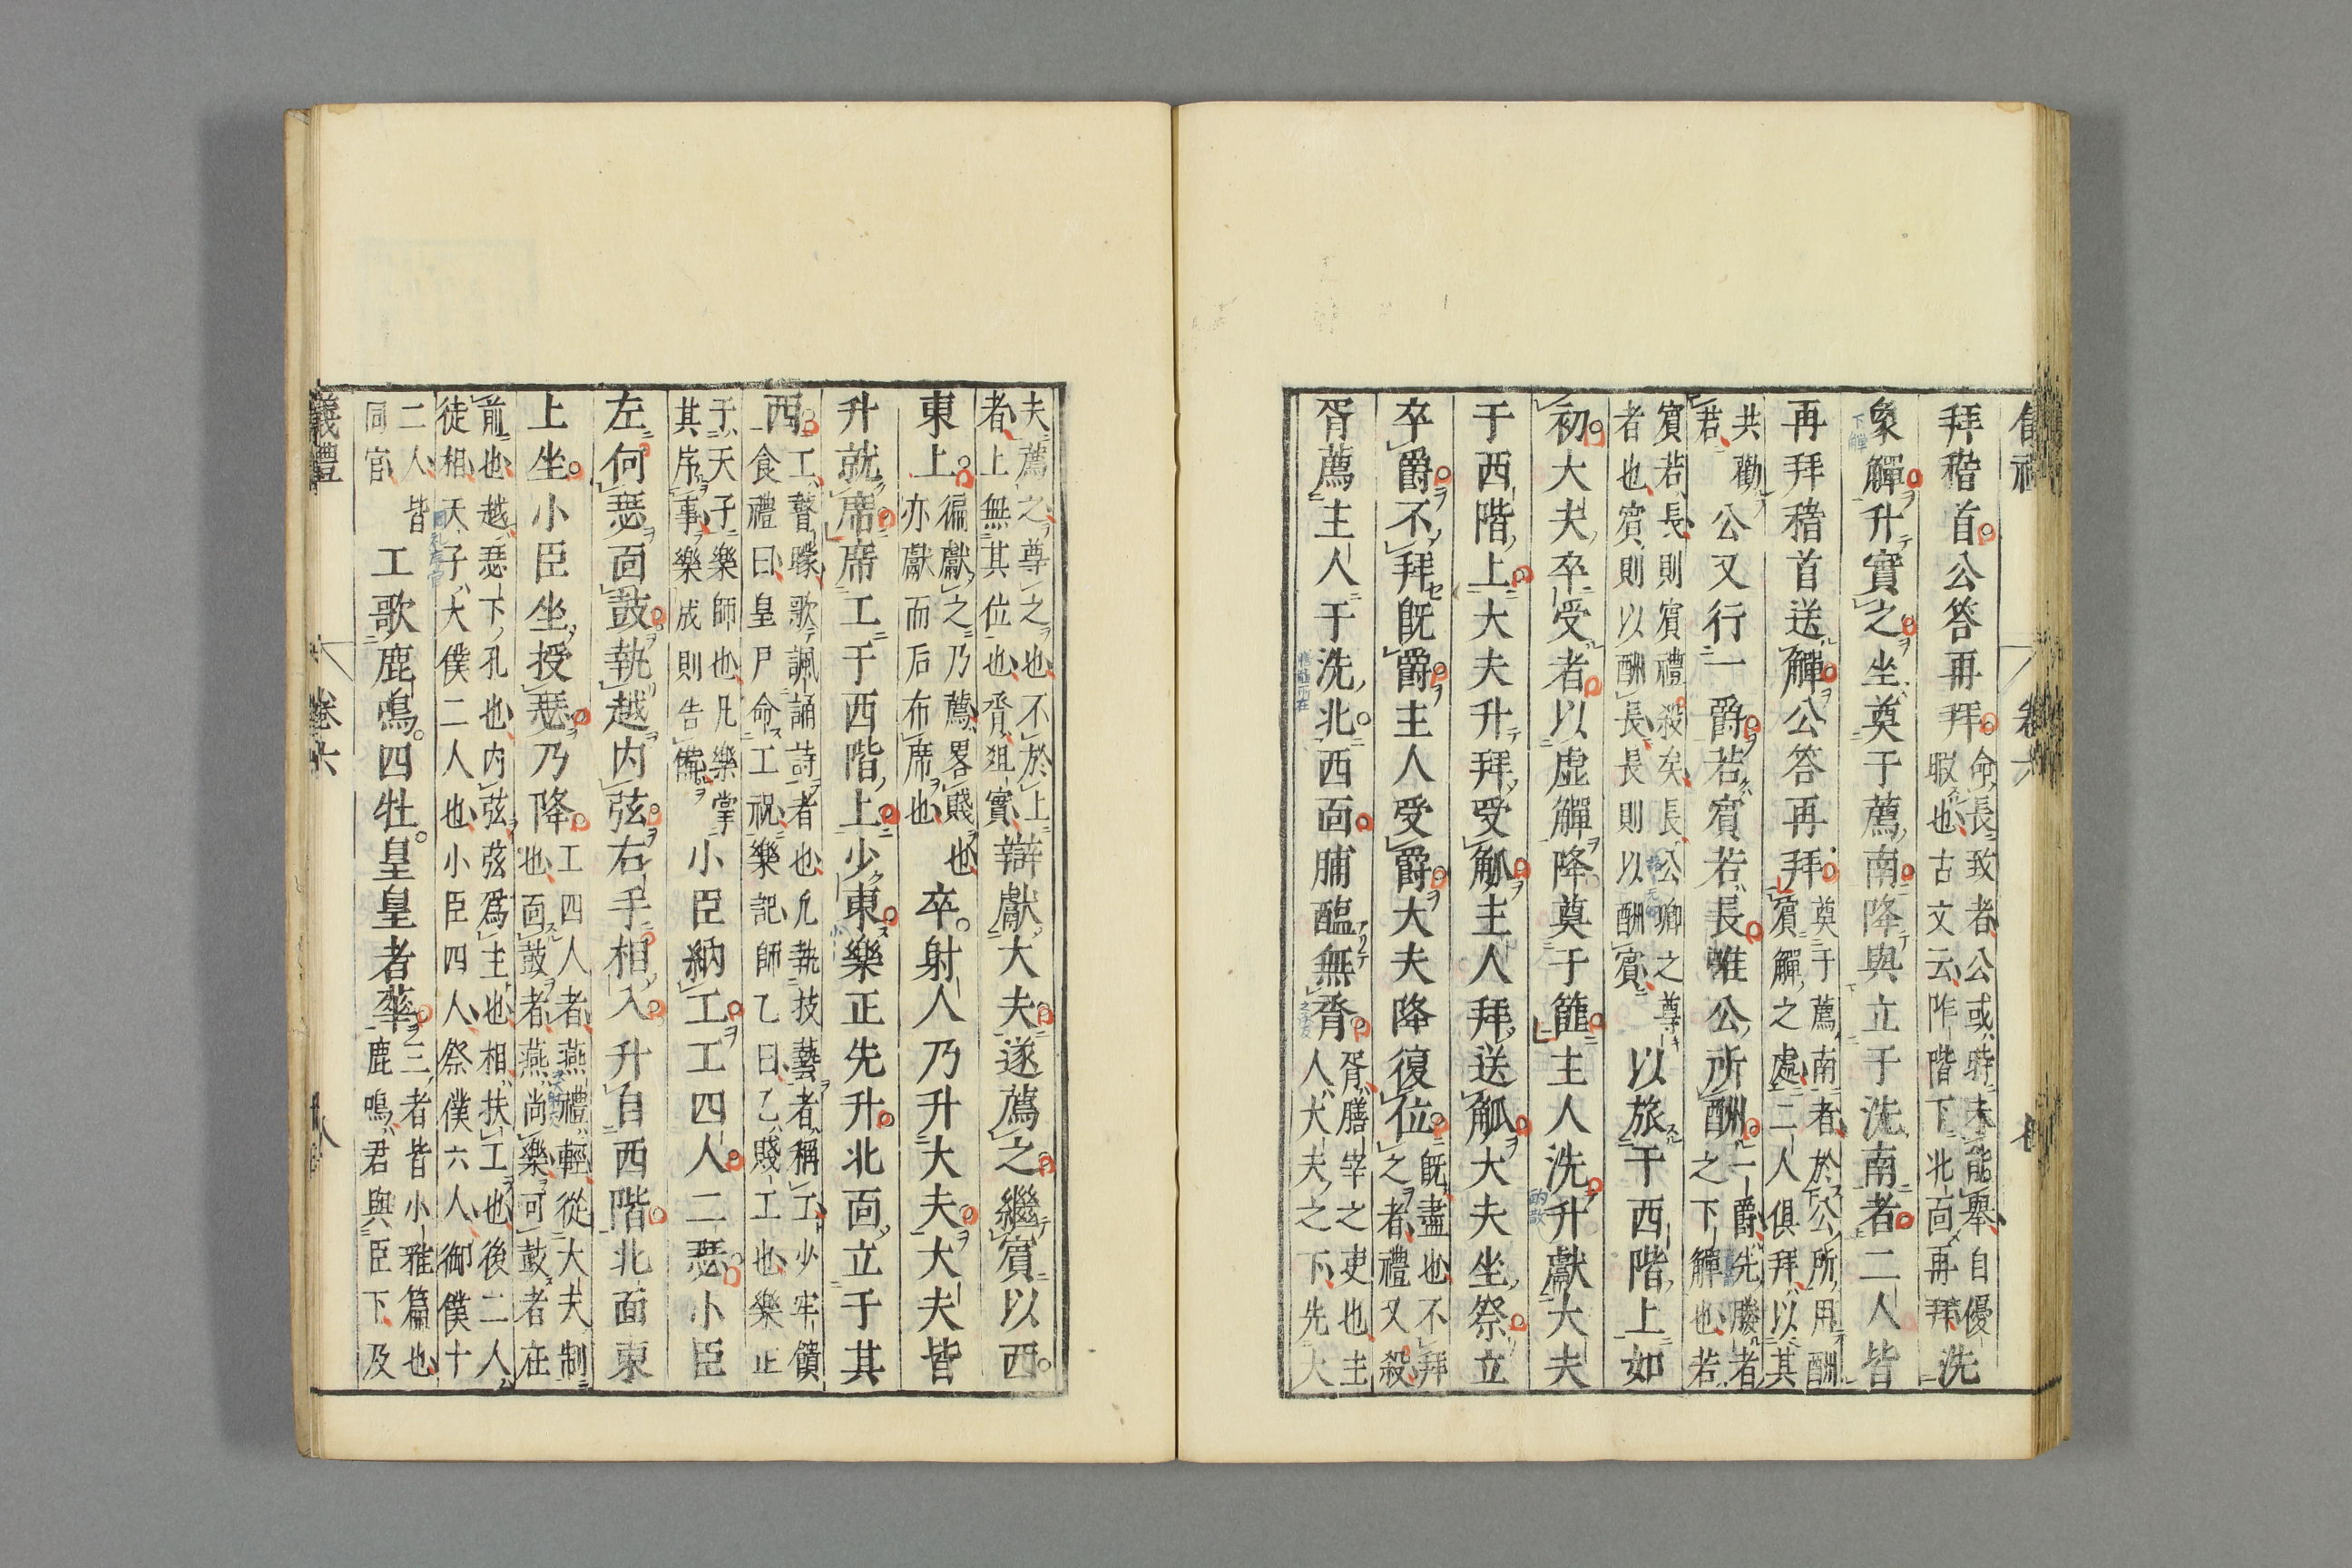 拜稽首公答再拜命長致者公或時未能舉自優
暇也古文云阼階下北面再拜洗
象觶升實之坐奠于薦南降與立于洗南者二人皆
再拜稽首送觶公答再拜奠于薦南者於公所用酬
賓觶之處二人俱拜以其
共勸
君公又行一爵若賓若長唯公所酬一爵先媵者
之下觶也若
賓若長則賓禮殺矣長公卿之尊
者也賓則以酬長長則以酬賓以旅于西階上如
初大夫卒受者以虛觶降奠于篚主人洗升獻大夫
于西階上大夫升拜受觚主人拜送觚大夫坐祭立
卒爵不拜既爵主人受爵大夫降復位既盡也不拜
之者禮又殺
胥薦主人于洗北西面脯醢無脀胥膳宰之吏也主
人大夫之下先大
夫薦之尊之也不於上
者上無其位也脀俎實辯獻大夫遂薦之繼賓以西
東上徧獻之乃薦畧賤也
亦獻而后布席也卒射人乃升大夫大夫皆
升就席席工于西階上少東樂正先升北面立于其
西工瞽矇歌諷誦詩者也凡執技藝者稱工少牢饋
食禮曰皇尸命工祝樂記師乙曰乙賤工也樂正
于天子樂師也凡樂掌
其序事樂成則告備小臣納工工四人二瑟小臣
左何瑟面鼓執越內弦右手相入升自西階北面東
上坐小臣坐授瑟乃降工四人者燕禮輕從大夫制
也面鼓者燕尚樂可鼓者在
前也越瑟下孔也內弦弦爲主也相扶工也後二人
徒相天子大僕二人也小臣四人祭僕六人御僕十
二人皆
同官工歌鹿鳴四牡皇皇者華三者皆小雅篇也
鹿鳴君與臣下及
儀禮 卷六